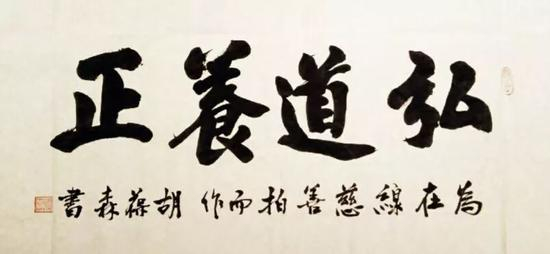 弘道養正
為在線慈善拍而作胡葆森書